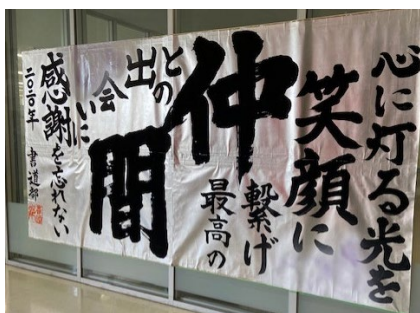 心に灯る光を
笑顔に
繋げ
最高の
仲間
との
出会いに
感謝を忘れない
二〇二〇年 書道部